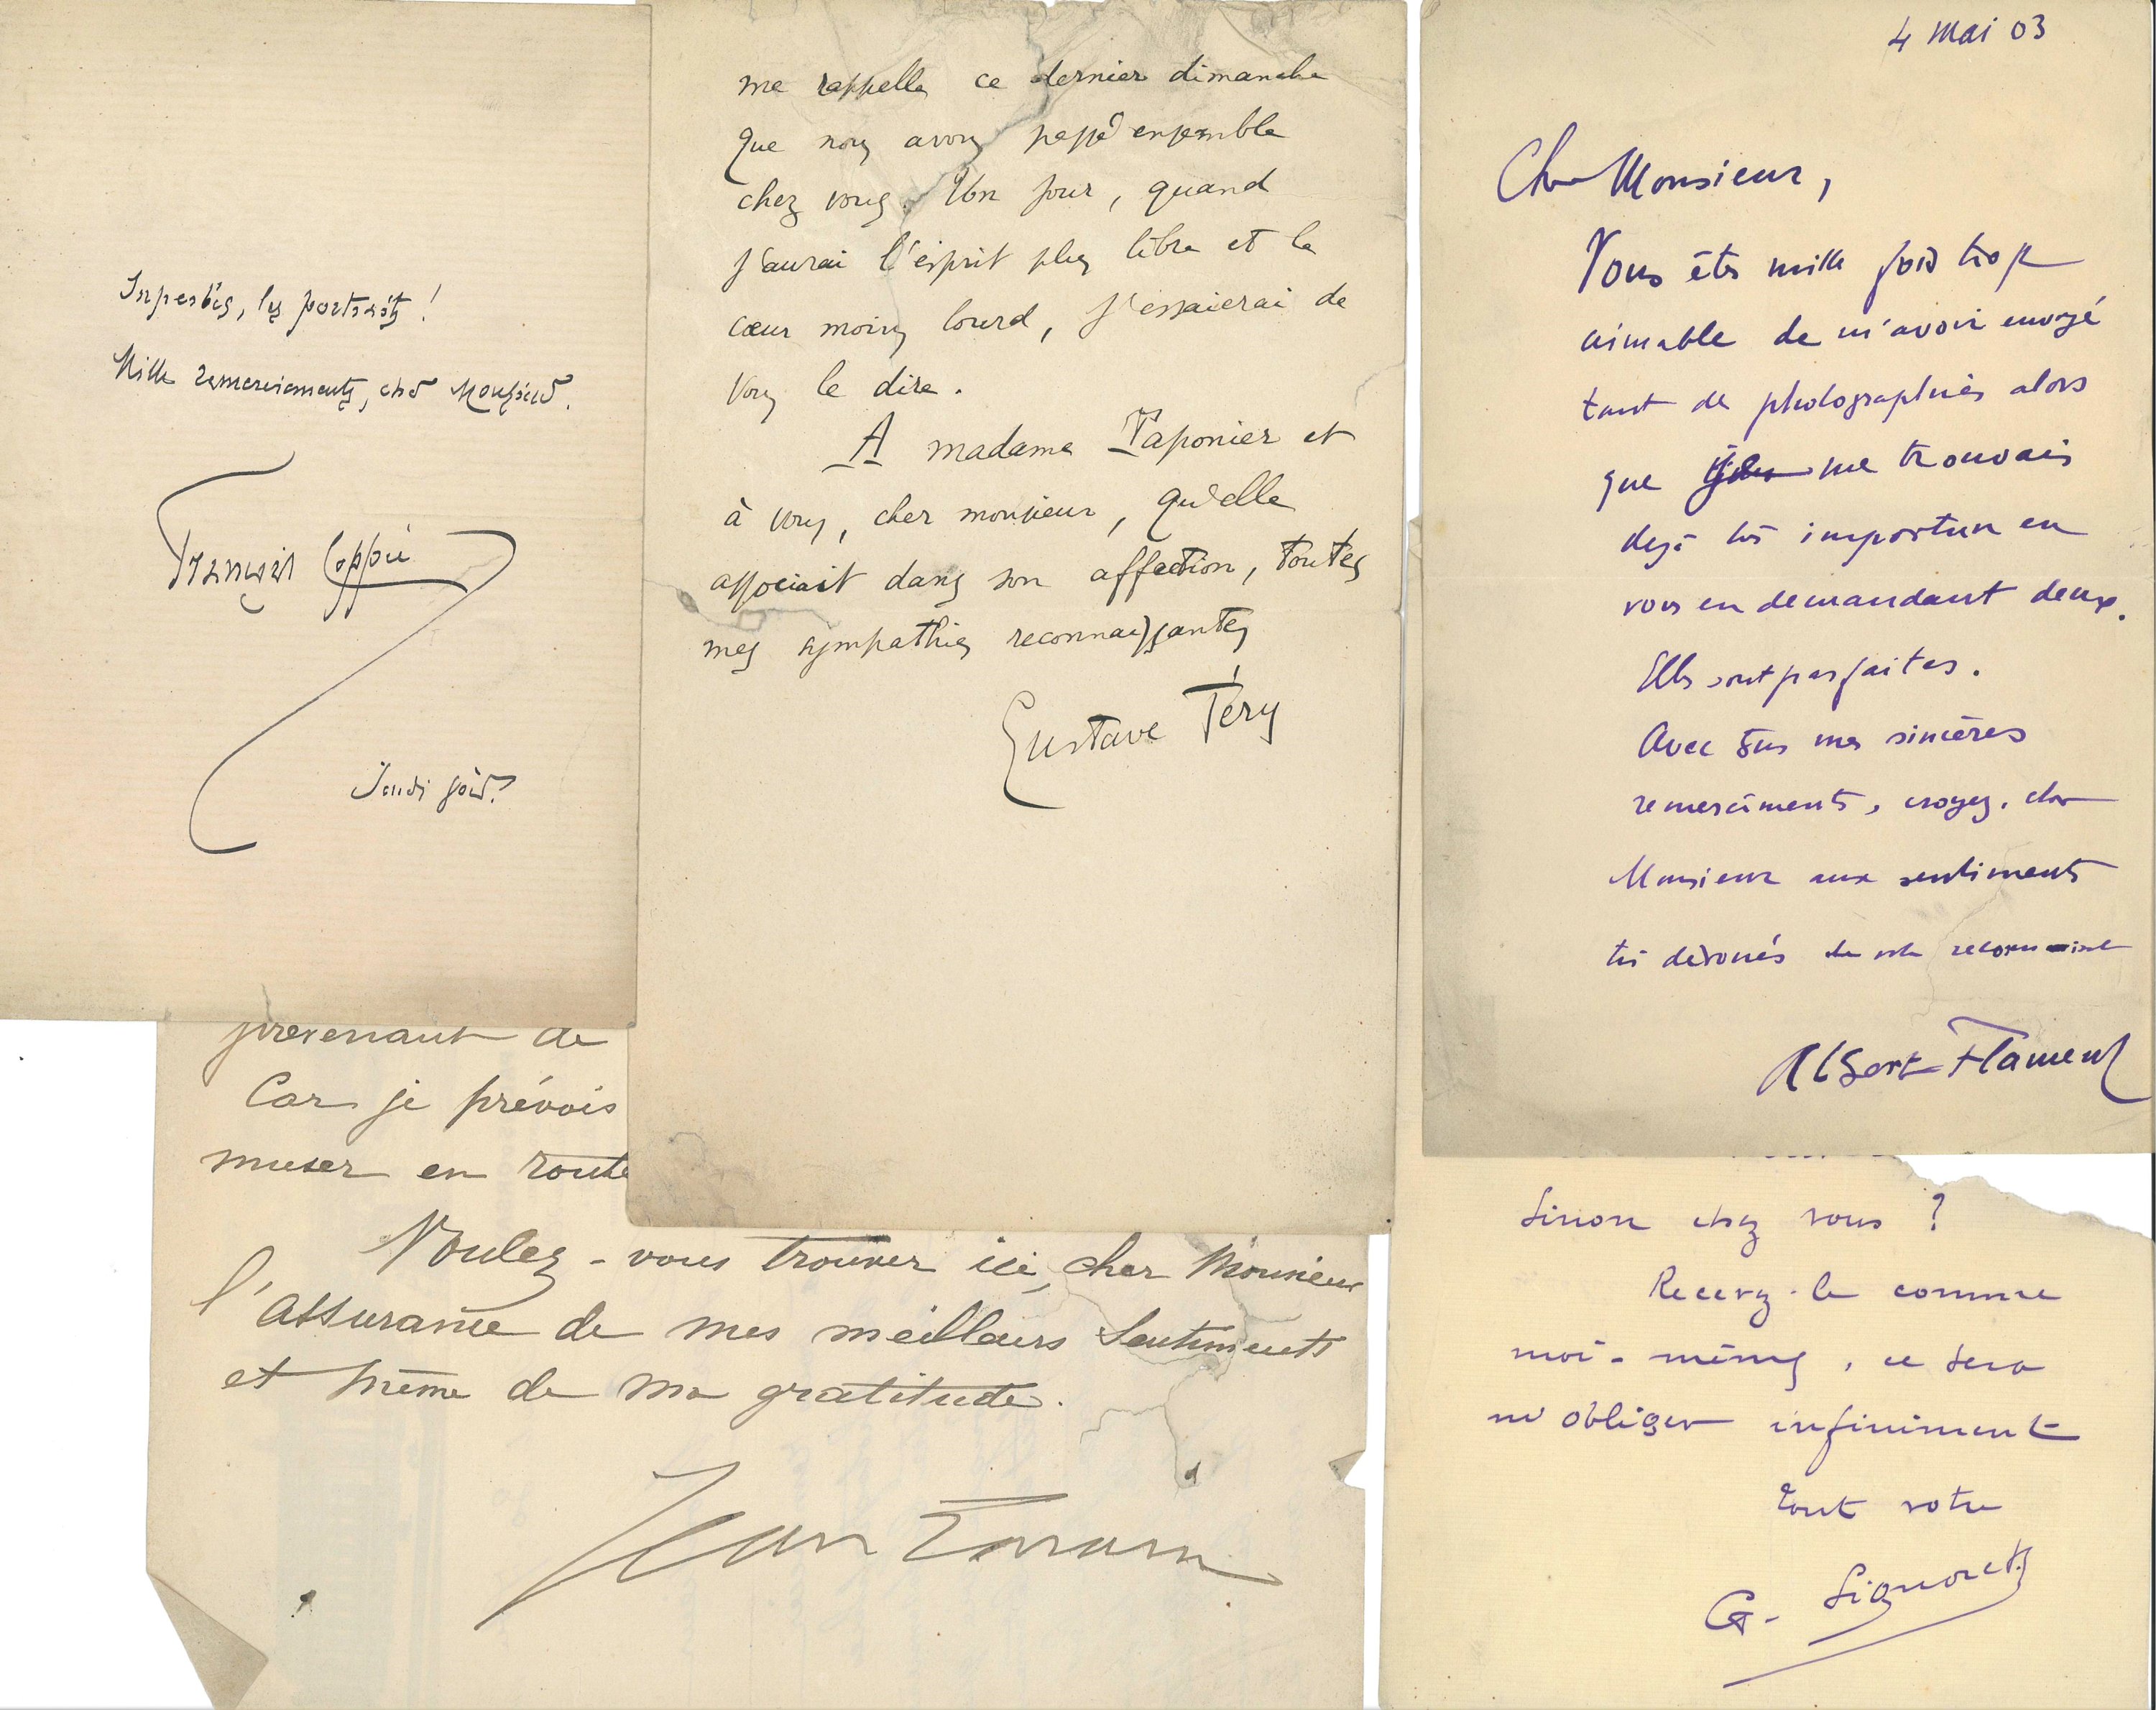 Superbes, les portraits !
Mille remerciements, cher Monsieur.
François Coppée
Jeudi soir.
me rappelle ce dernier dimanche
que nous avons passé ensemble
chez vous. Un jour, quand
j'aurai l'esprit plus libre et le
cœur moins lourd, j'essaierai de
vous le dire.
A madame Taponier et
à vous, cher monsieur, qu'elle
associait dans son affection, toutes
mes sympathies reconnaissantes
Gustave Téry
4 mai 03
Cher Monsieur,
Vous êtes mille fois trop
aimable de m'avoir envoyé
tant de photographies alors
que me trouvais
déjà très importun en
vous en demandant deux.
Elles sont parfaites.
Avec tous mes sincères
remerciments, croyez, cher
Monsieur aux sentiments
très dévoués de votre reconnaissant
Albert Flament
prévenant de
Car je prévois
muser en route
Voulez-vous trouver ici, cher Monsieur
l'assurance de mes meilleurs sentiments
et même de ma gratitude.
Jean
Sinon chez vous ?
Recevez-le comme
moi-même, ce sera
m'obliger infiniment
tout votre
G. Signoret